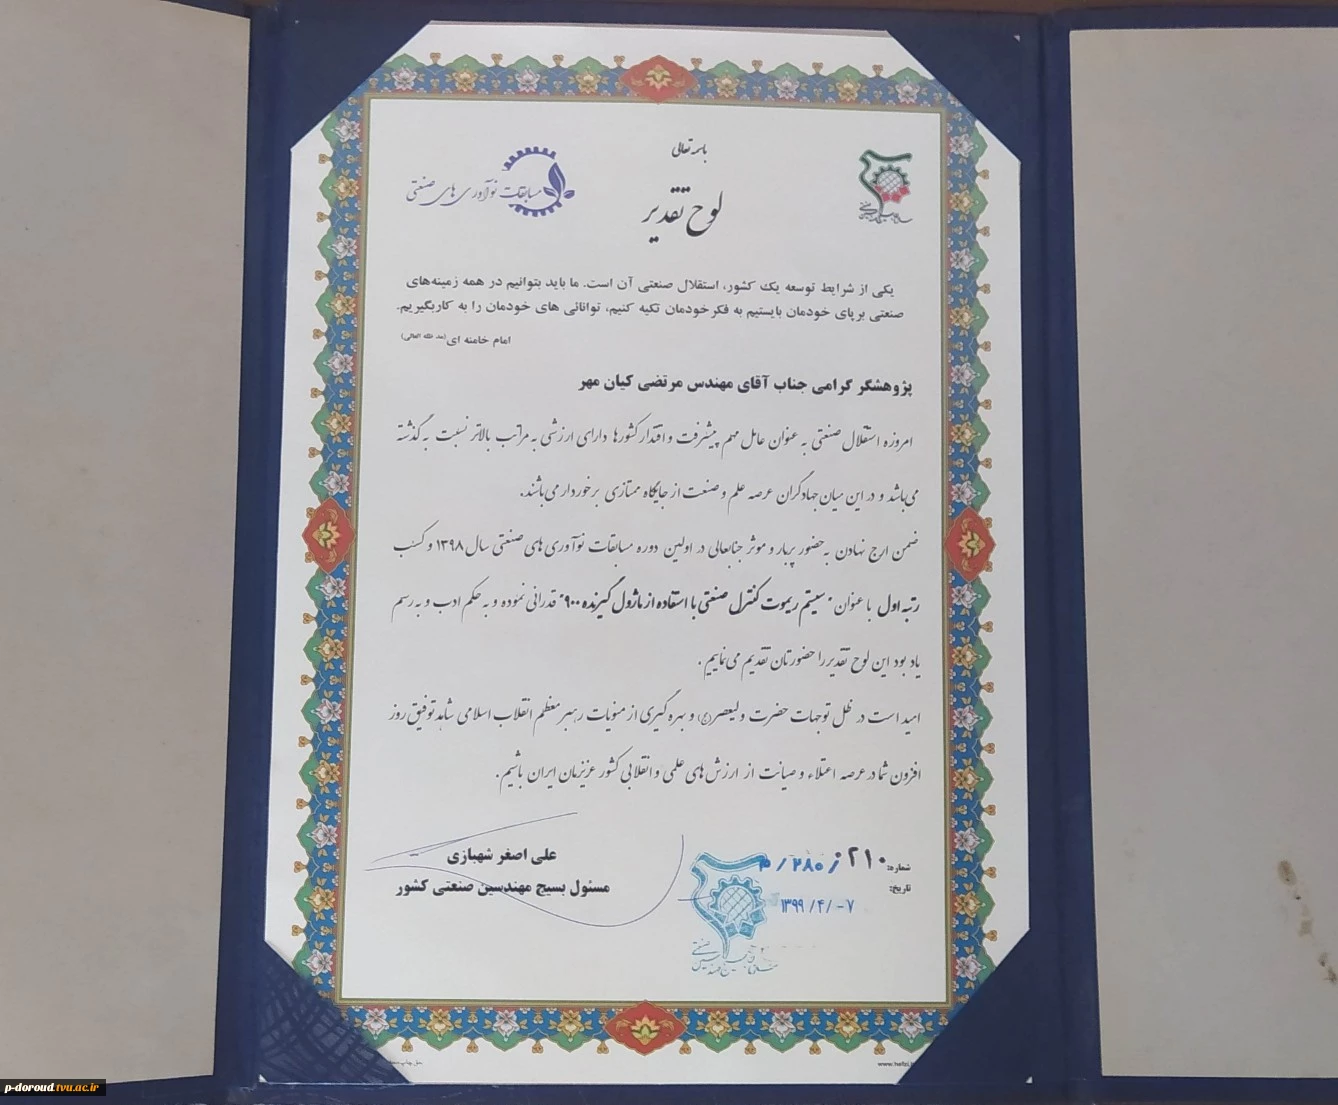 باسمه تعالی
لوح تقدیر
مسابقات نوآوری های صنعتی
یکی از شرایط توسعه یک کشور، استقلال صنعتی آن است. ما باید بتوانیم در همه زمینه‌های
صنعتی بر پای خودمان بایستیم به فکر خودمان تکیه کنیم، توانائی های خودمان را به کار بگیریم.
امام خامنه ای (مد ظله العالی)
پژوهشگر گرامی جناب آقای مهندس مرتضی کیان مهر
امروزه استقلال صنعتی به عنوان عامل مهم پیشرفت و اقتدار کشورها دارای ارزشی به مراتب بالاتر نسبت به گذشته
می‌باشد و در این میان جهادگران عرصه علم و صنعت از جایگاه ممتازی برخوردار می‌باشند.
ضمن ارج نهادن به حضور پربار و موثر جنابعالی در اولین دوره مسابقات نوآوری های صنعتی سال ۱۳۹۸ و کسب
رتبه اول با عنوان "سیستم ریموت کنترل صنعتی با استفاده از ماژول گیرنده ۹۰۰" قدرانی نموده و به حکم ادب و به رسم
یاد بود این لوح تقدیر را حضورتان تقدیم می‌نماییم.
امید است در ظل توجهات حضرت ولیعصر(عج) و بهره گیری از منویات رهبر معظم انقلاب اسلامی شاهد توفیق روز
افزون شما در عرصه اعتلاء و صیانت از ارزش های علمی و انقلابی کشور عزیزمان ایران باشیم.
علی اصغر شهبازی
مسئول بسیج مهندسین صنعتی کشور
شماره:
تاریخ: ۱۳۹۹/۴/-۷
p-doroud.tvu.ac.ir